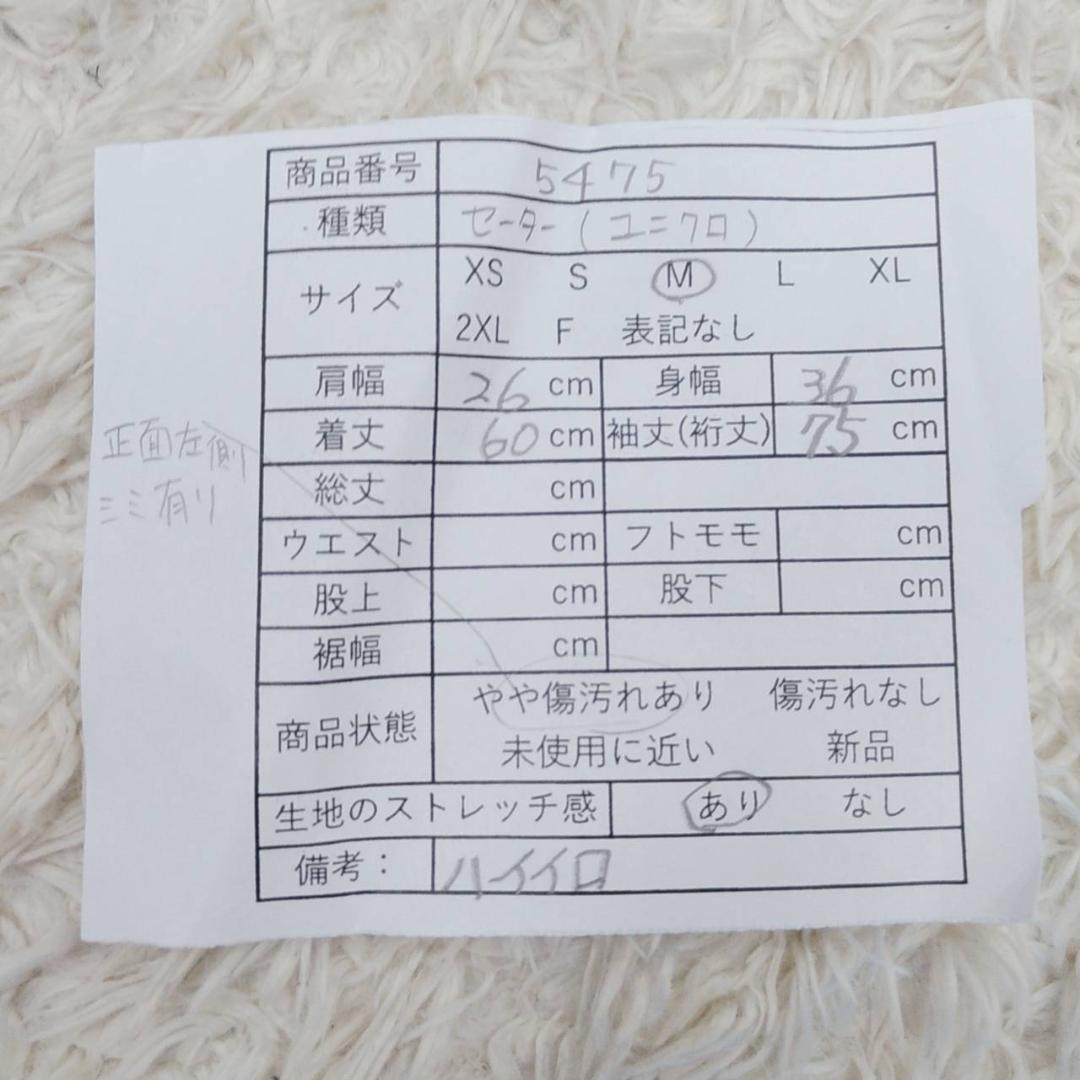 商品番号 5475
種類 セーター(ユニクロ)
サイズ XS S M L XL
2XL F 表記なし
肩幅 26 cm 身幅 36 cm
着丈 60 cm 袖丈(裄丈) 75 cm
正面左側
ミミ有り
総丈 cm
ウエスト cm フトモモ cm
股上 cm 股下 cm
裾幅 cm
商品状態 やや傷汚れあり 傷汚れなし
未使用に近い 新品
生地のストレッチ感 あり なし
備考: ハイイロ